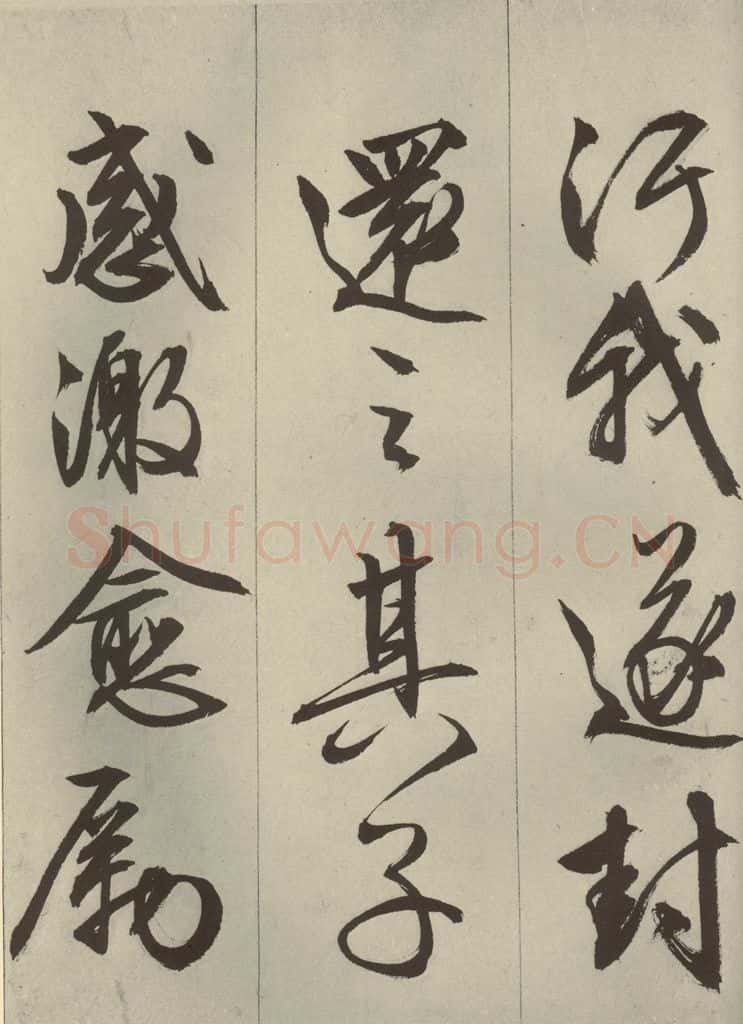 汙我遂封
還之其子
感激愈厲
Shufawang.CN